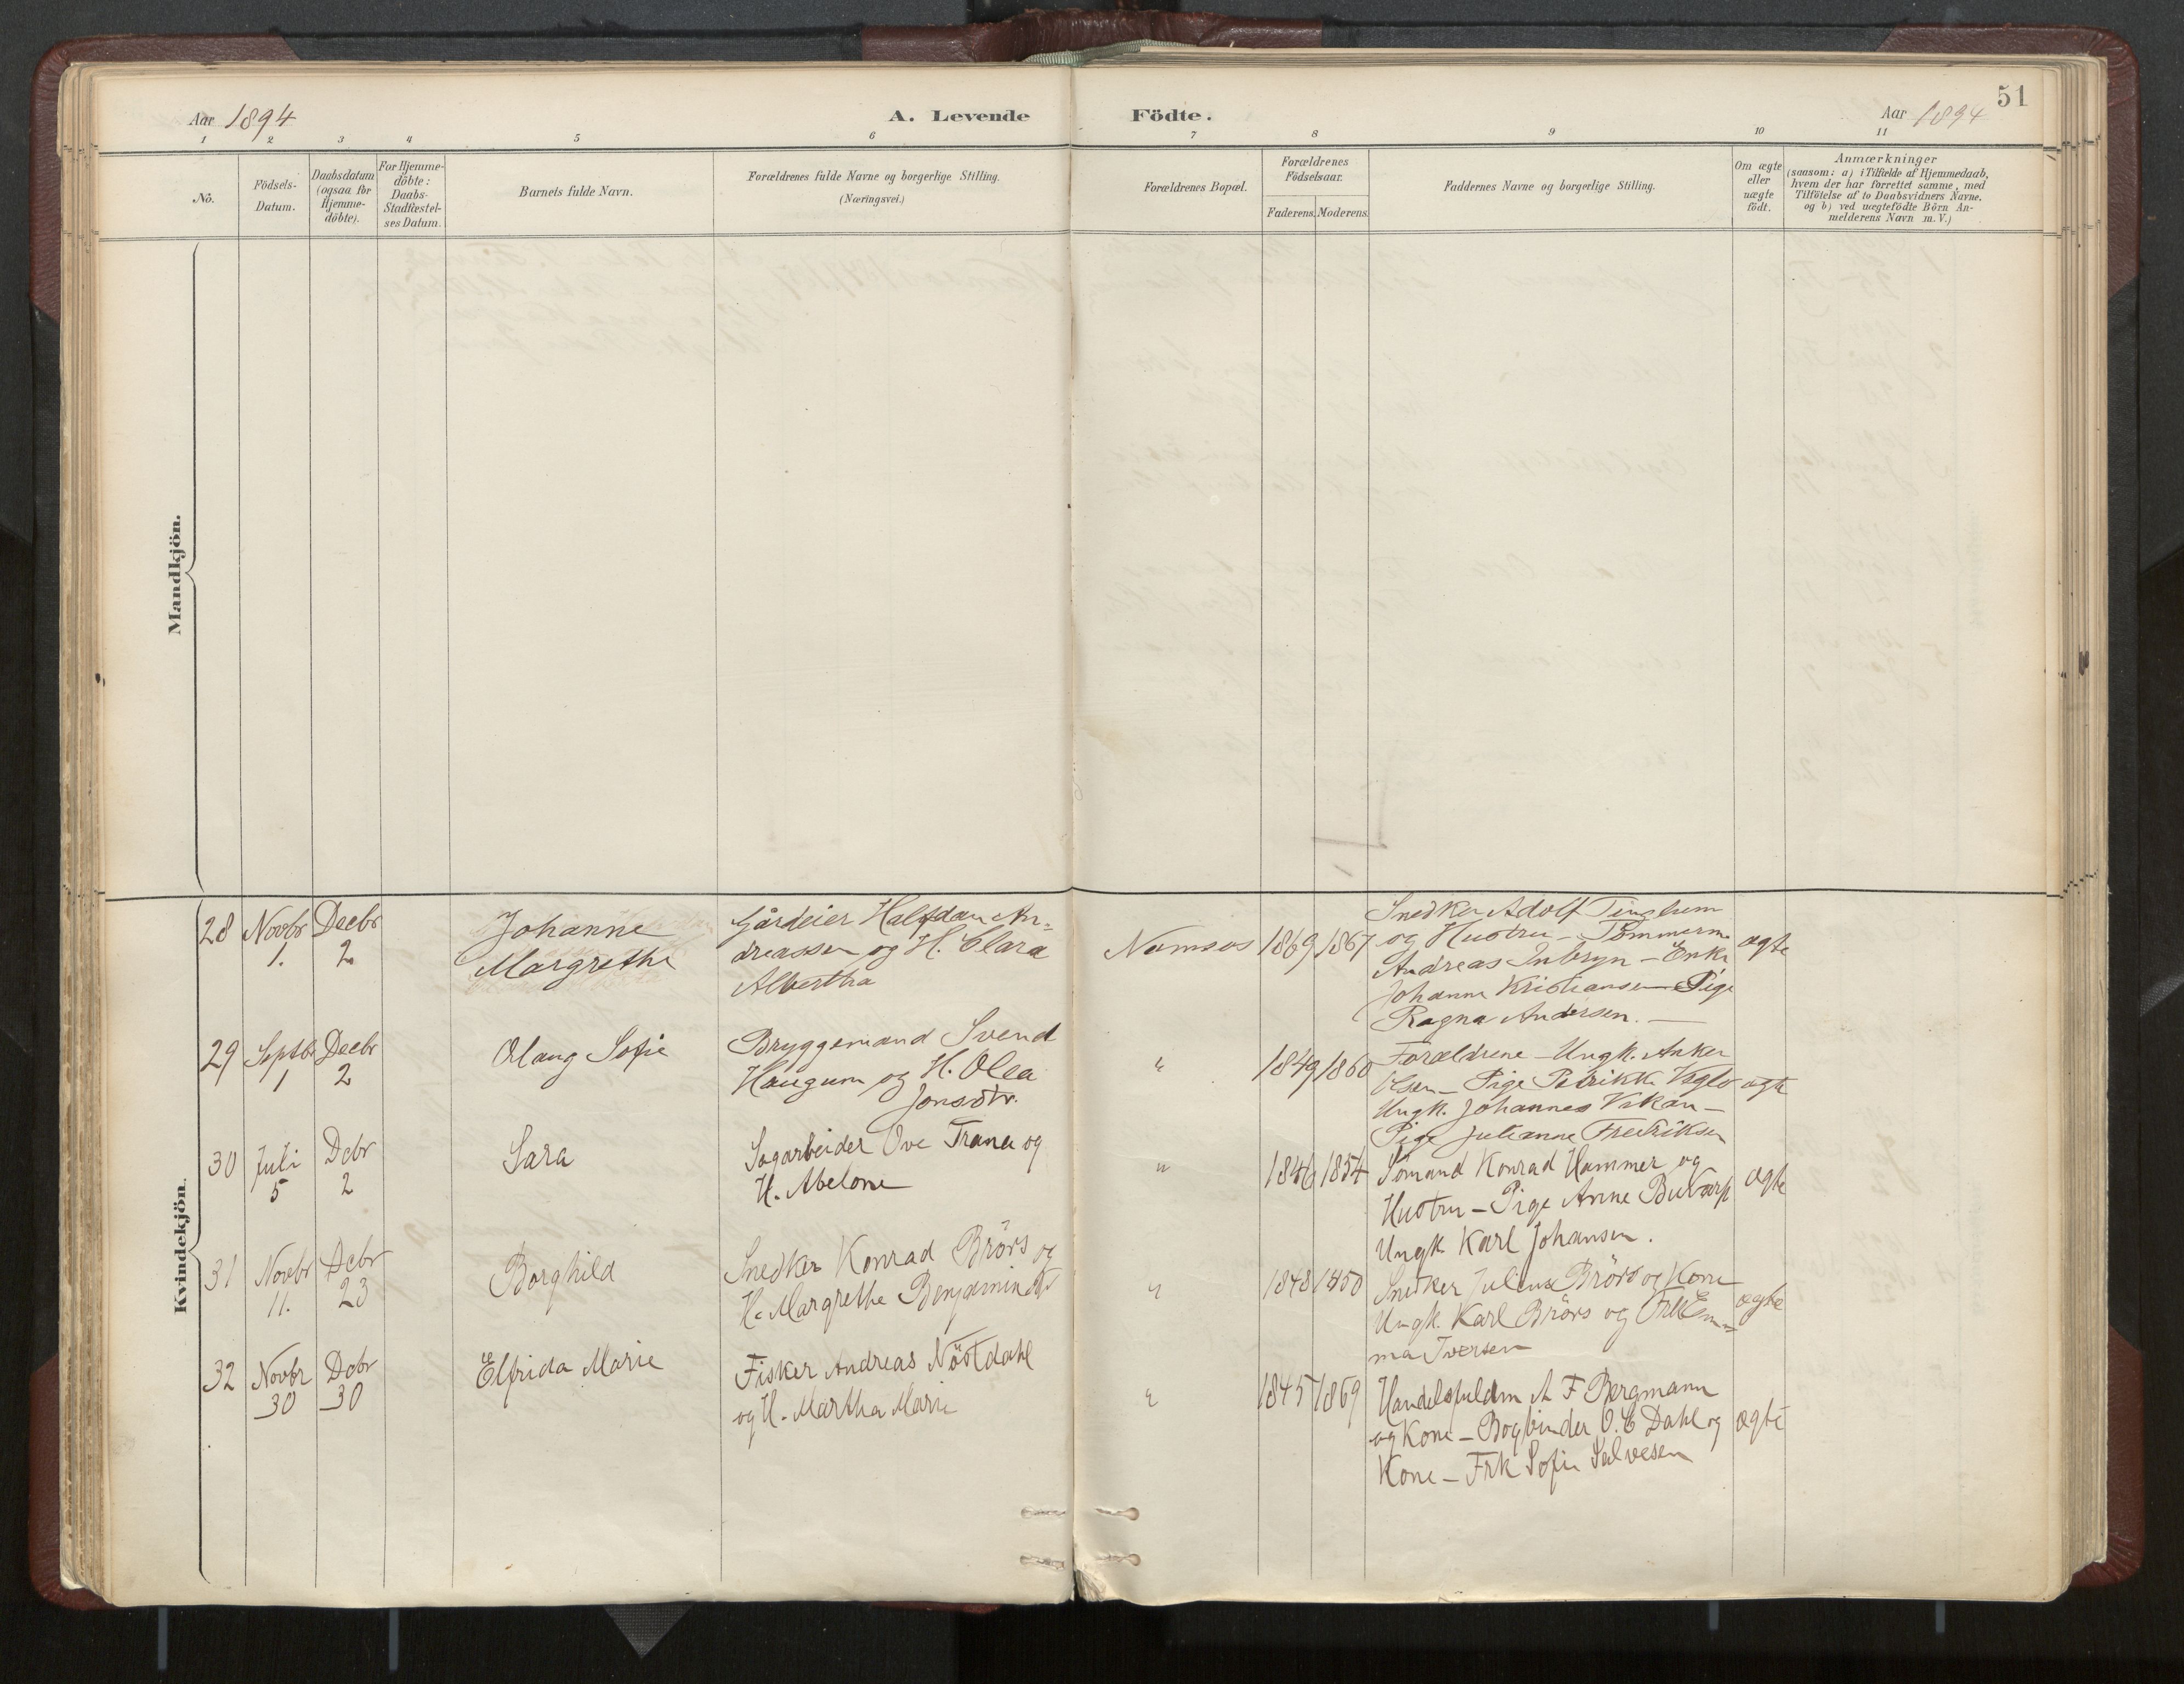 51
Aar 1894
A. Levende Födte.
Aar 1894
1 2 3 4 5 6 7 8 9 10 11
No.
Födsels-Datum.
Daabsdatum (ogsaa for Hjemme-döbte).
For Hjemme-döbte: Daabs-Stadfæstel-ses Datum.
Barnets fulde Navn.
Forældrenes fulde Navne og borgerlige Stilling.
(Næringsvei.)
Forældrenes Bopæl.
Forældrenes Födselsaar.
Faderens. Moderens.
Faddernes Navne og borgerlige Stilling.
Om ægte eller uægte födt.
Anmærkninger
(saasom: a) i Tilfælde af Hjemmedaab,
hvem der har forrettet samme, med
Tilföielse af to Daabsvidners Navne.
og b) ved uægtefödte Börn An-
melderens Navn m.V.)
Mandkjön.
Kvindekjön.
28 Novbr 1. Decbr 2
Johanne
Margrethe
Gårdeier Halfdan An-
dreassen og H. Clara
Albertha
Namsos 1869 1867
Snedker Adolf
og Hustru - Tömmerm.
Andreas - Enke
Johanne Kristiansen - Pige
Ragna Andersen. -
ægte
29 Septbr 1 Decbr 2
Olaug Sofie
Bryggemand Svend
Haugum og H. Olea
Jonsdtr.
" 1849 1860
Forældrene - Ungk. Anker
Olsen - Pige Petrikke
Ungk. Johannes Vikan -
Pige Julianne Fredriksen
ægte
30 Juli 5 Dcbr 2
Sara
Sagarbeider Ove Trana og
H. Abelone
" 1846 1854
Sömand Konrad Hammer og
Hustru - Pige Anne Buvarp
Ungk Karl Johansen.
ægte
31 Novbr 11. Dcbr 23
Borghild
Snedker Konrad Brörs og
H. Margrethe Benjamindtr
" 1848 1850
Snedker Julius Brörs og Kone
Ungk. Karl Brörs og Frk Em-
ma Iversen
ægte
32 Novbr 30 Dcbr 30
Elfrida Marie
Fisker Andreas Nöstdahl
og H. Martha Marie
" 1845 1869
Handelsfuldm A F Bergmann
og Kone - Bogbinder O. C Dahl og
Kone - Frk Sofie Salvesen
ægte